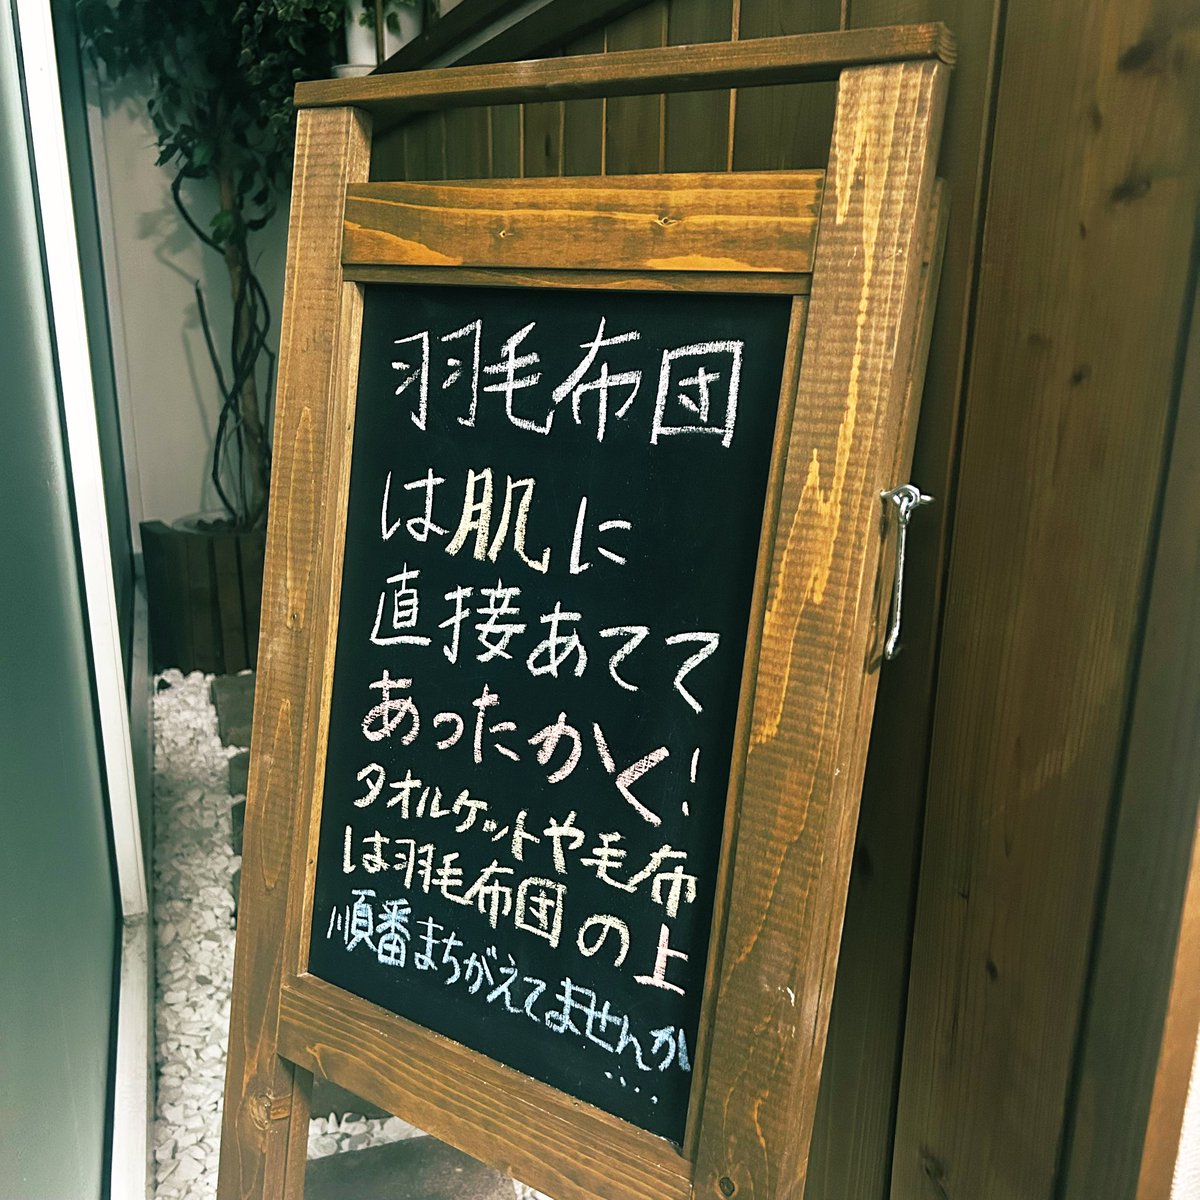 羽毛布団
は肌に
直接あてて
あったかく!
タオルケットや毛布
は羽毛布団の上
順番まちがえてませんか
....